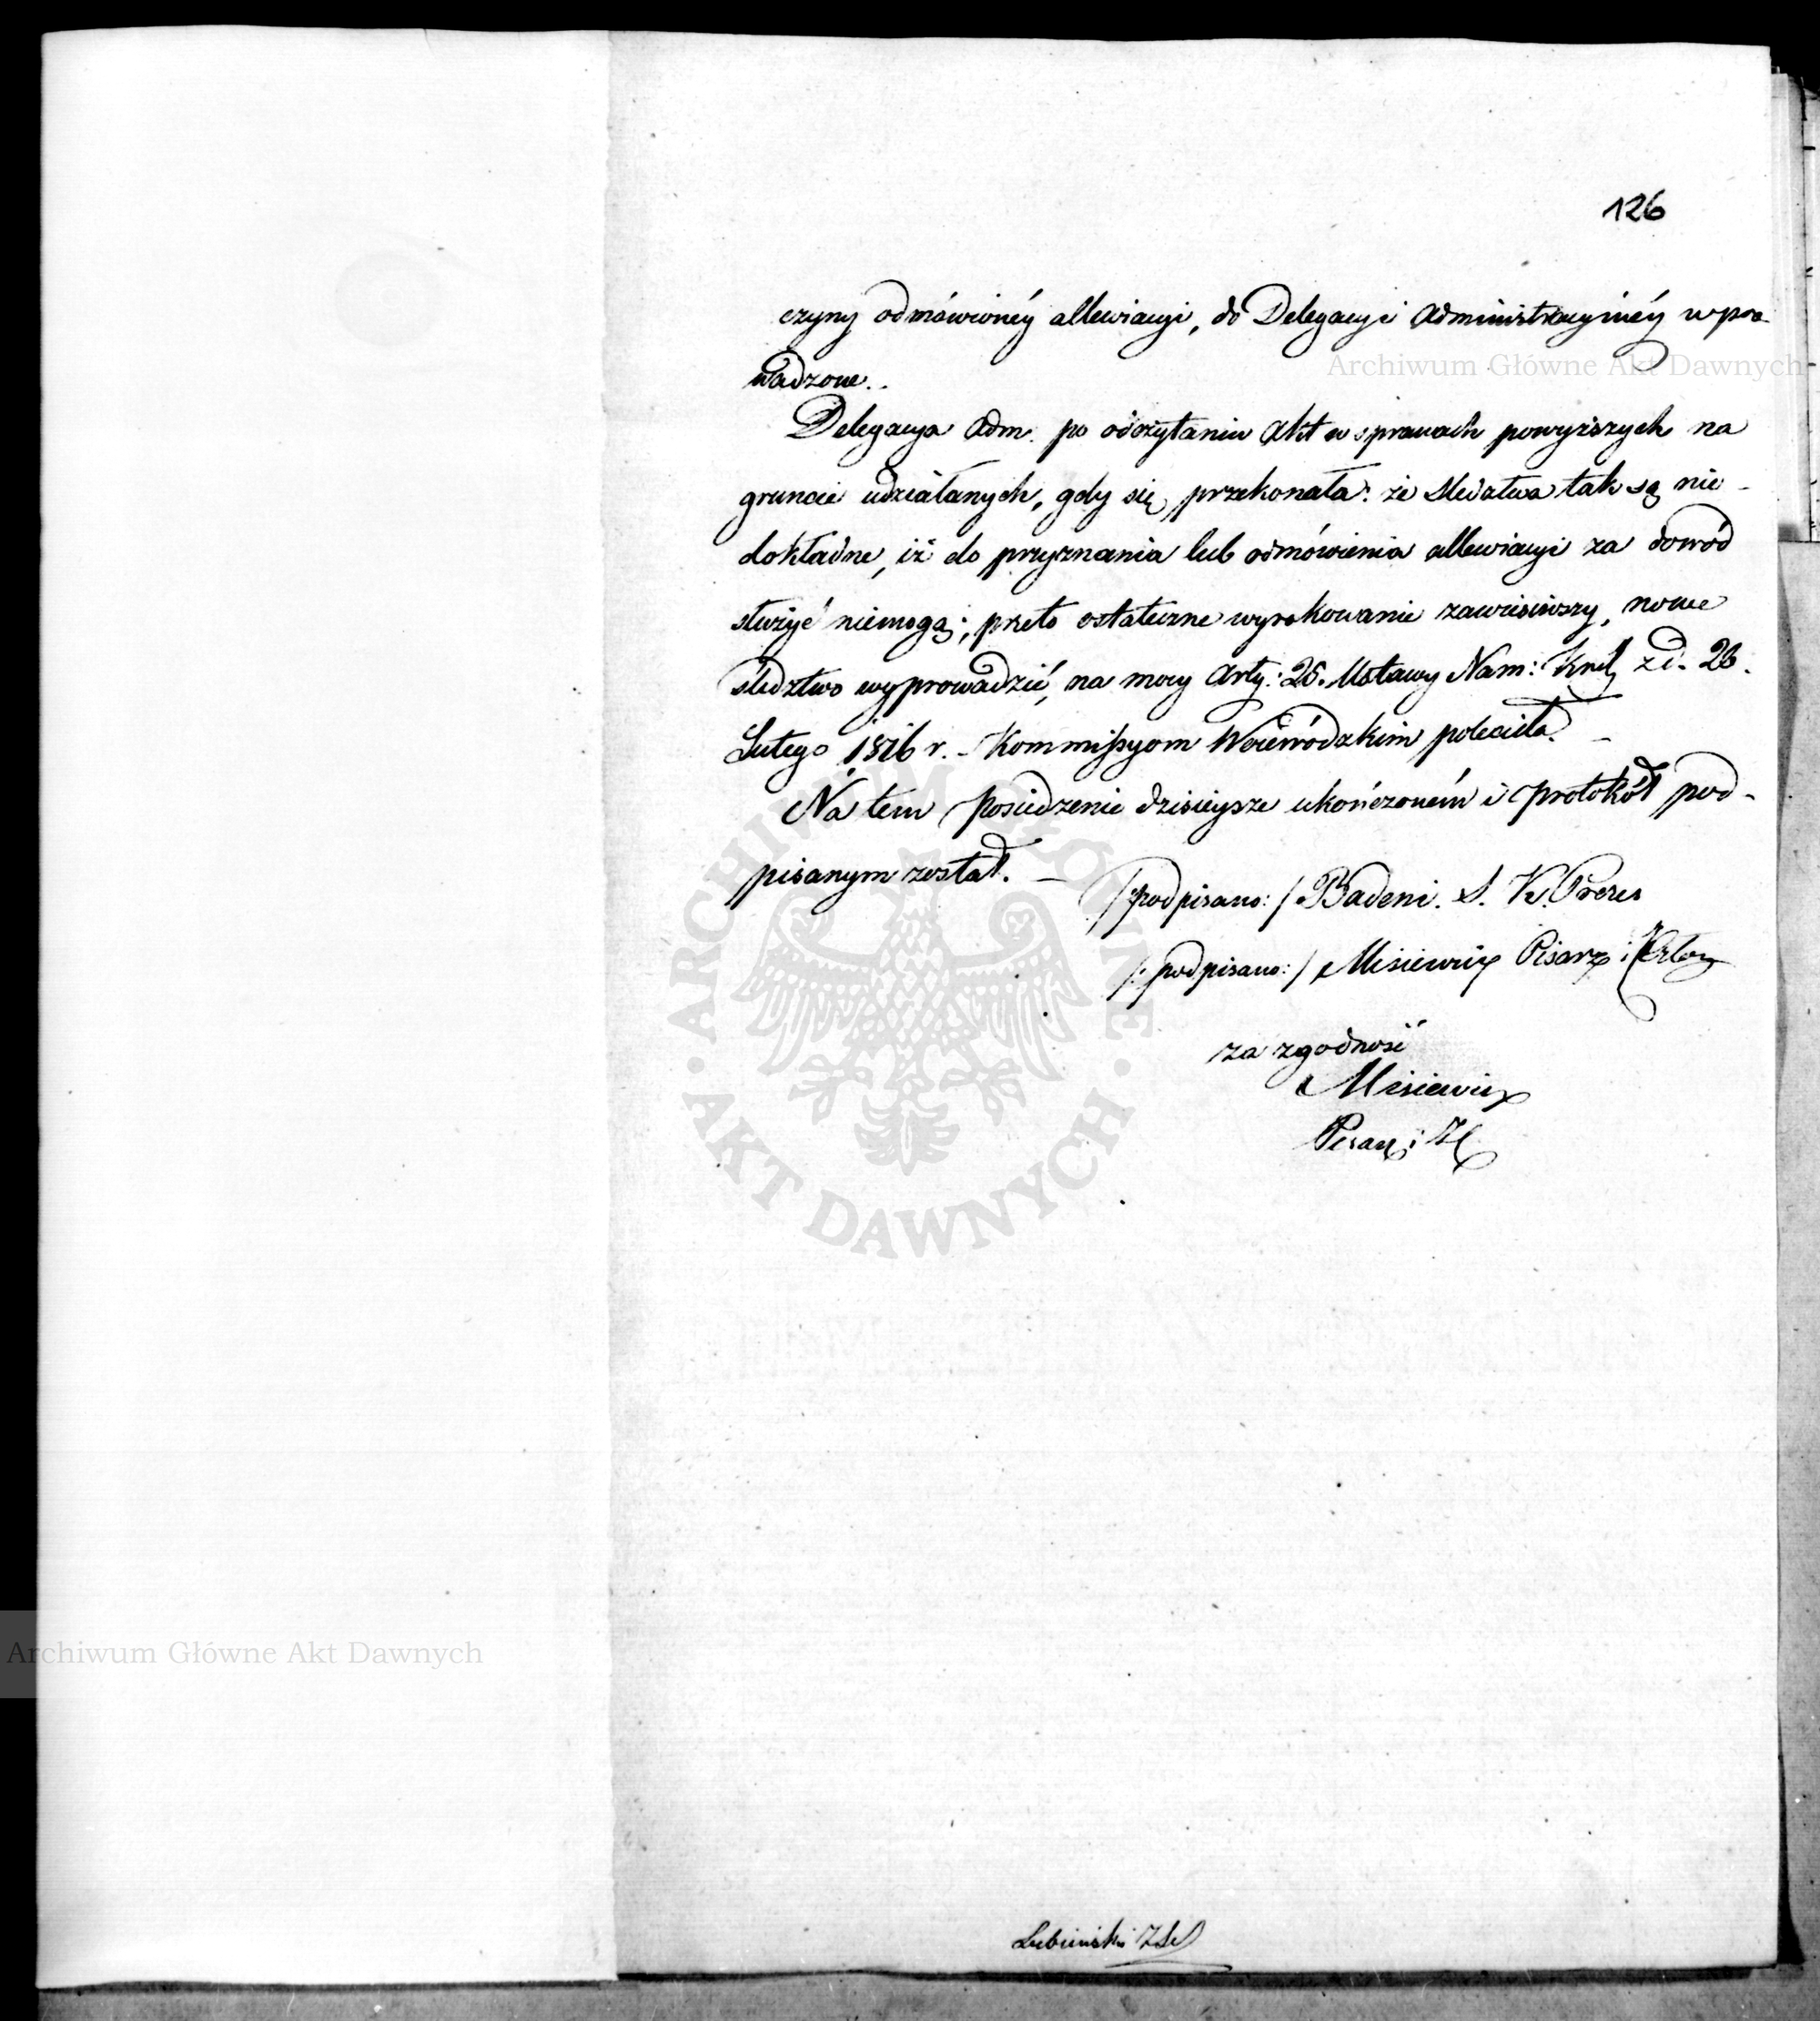 126
czyny odmówionéy allewiacyi, do Delegacyi Administracyinéy wpro-
wadzone.
Delegacya Adm. po odczytaniu Akt w sprawach powyższych na
gruncie udziałanych, gdy się przekonała: że śledztwa tak są nie-
dokładne, iż do przyznania lub odmówienia allewiacyi za dowód
służyć niemogą; przeto ostateczne wyrokowanie zawiesiwszy, nowe
śledztwo wyprowadzić, na mocy Arty: 25. Ustawy Nam: Król z d. 26.
Lutego 1816 r. - Kommissyom Woiewódzkim poleciła. -
Na tem posiedzenie dzisieysze ukończoném i protokół pod-
pisanym został. —
/:podpisano:/ Badeni. S. K. Prezes
/:podpisano:/ Misiewicz Pisarz i
za zgodność
Misiewicz
Pisarz i
Lubieński
Archiwum Główne Akt Dawnych
Archiwum Główne Akt Dawnych
ARCHIWUM GŁÓWNE · AKT DAWNYCH ·